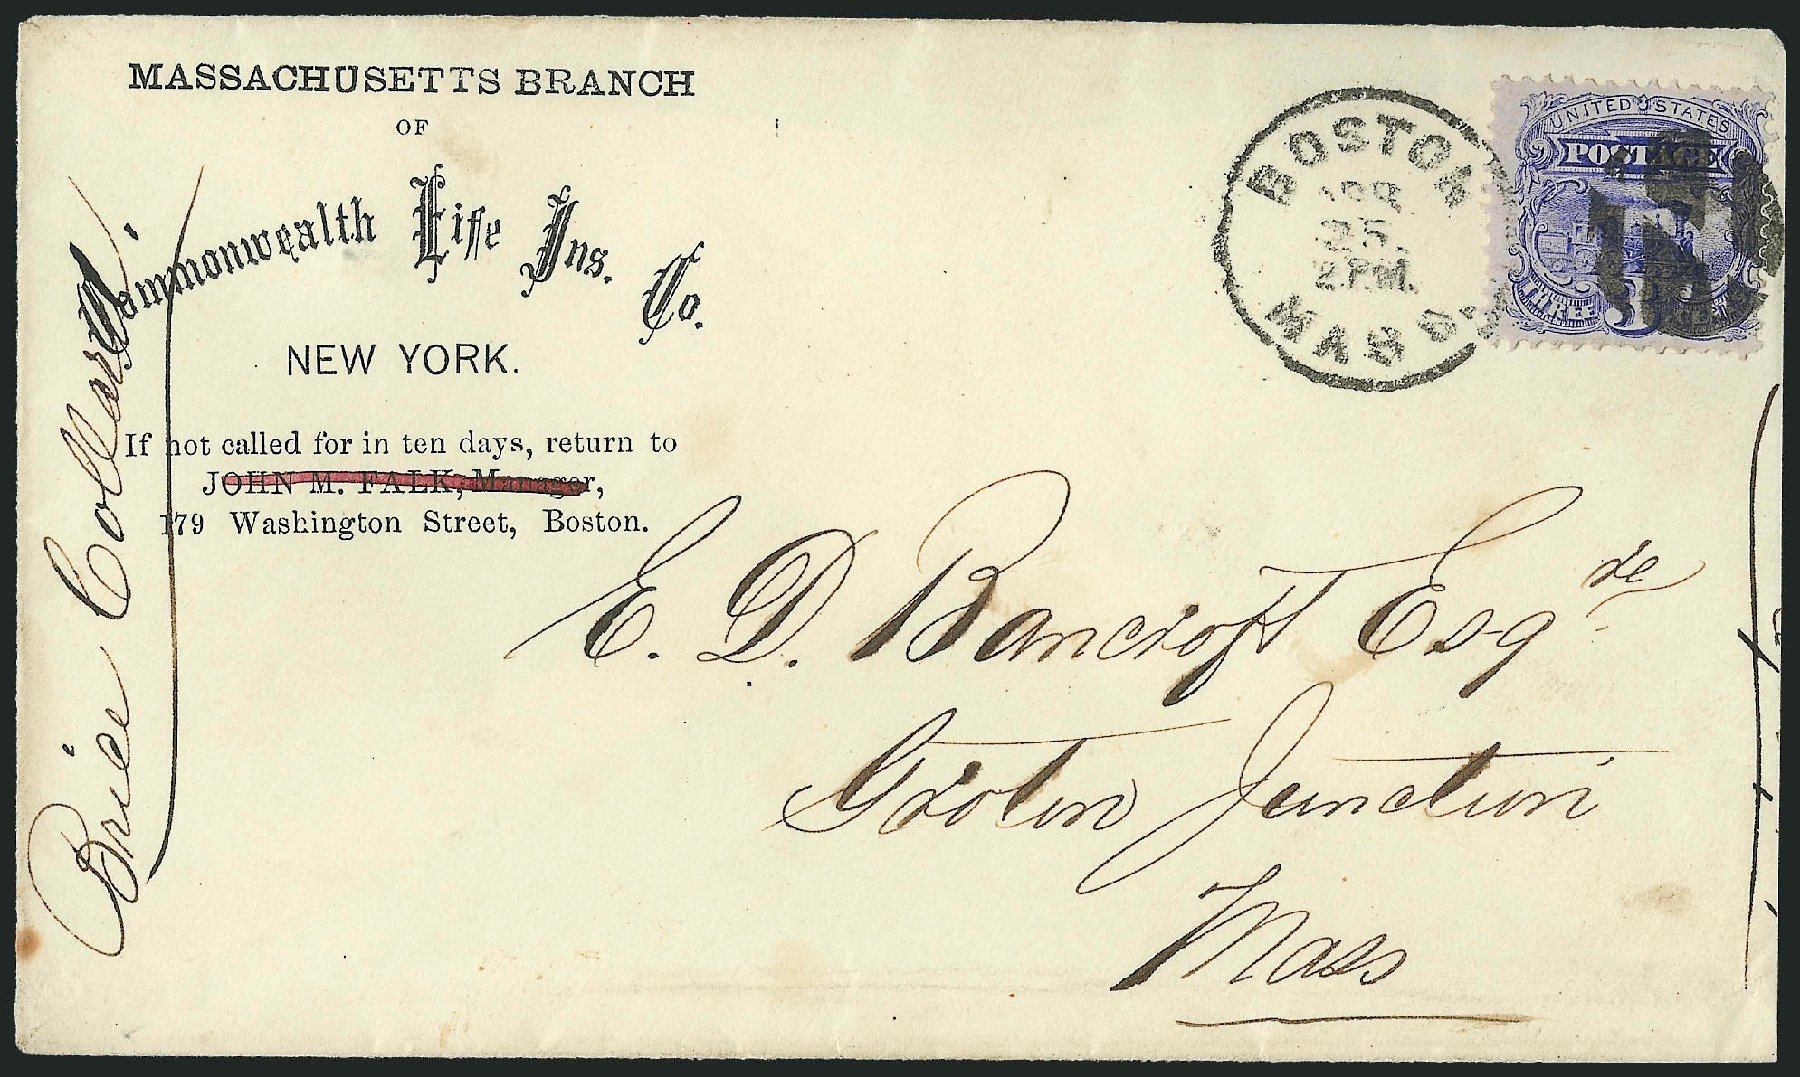 MASSACHUSETTS BRANCH
OF
Commonwealth Life Ins. Co.
NEW YORK.
If not called for in ten days, return to
JOHN M. FALK, Manager,
179 Washington Street, Boston.
Brice Collard
BOSTON
25
2 PM.
MASS.
UNITED STATES
POSTAGE
THREE 3
E. D. Bancroft Esqre
Groton Junction
Mass